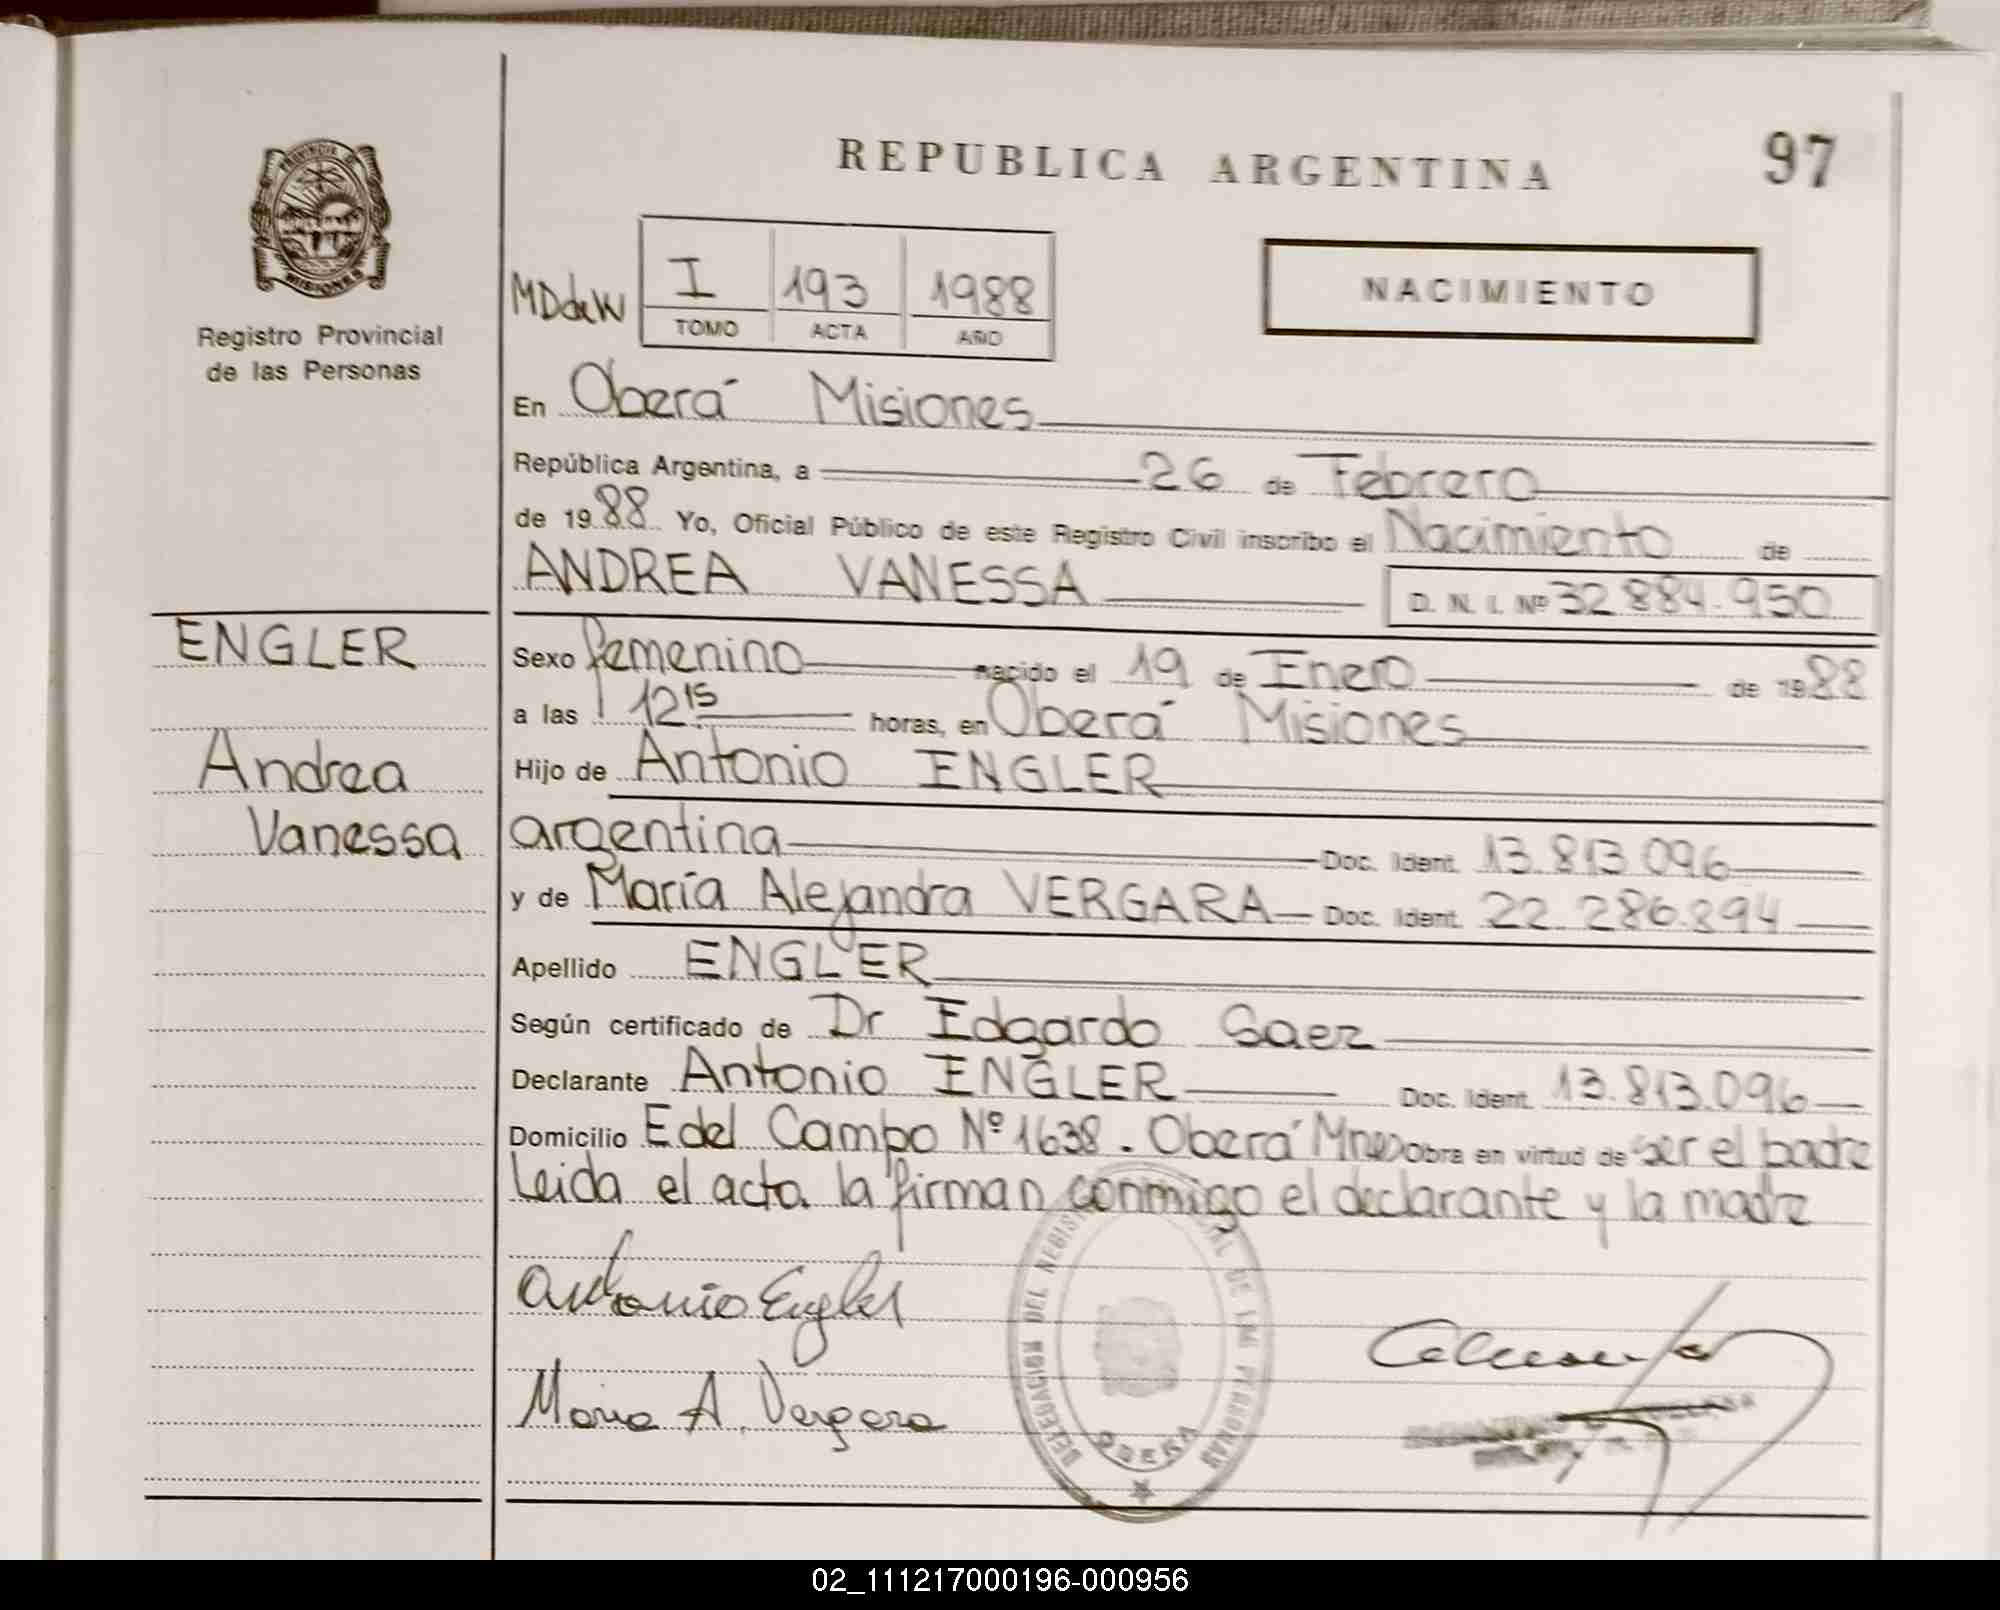 REPUBLICA ARGENTINA
97
PROVINCIA DE
MISIONES
Registro Provincial
de las Personas
MDdeW
I 193 1988
TOMO ACTA AÑO
NACIMIENTO
En Oberá Misiones
República Argentina, a 26 de Febrero
de 1988 Yo, Oficial Público de este Registro Civil inscribo el Nacimiento de
ANDREA VANESSA D. N. I. Nº 32.884.950
ENGLER
Andrea
Vanessa
Sexo femenino nacido el 19 de Enero de 1988
a las 12 15 horas, en Oberá Misiones
Hijo de Antonio ENGLER
argentina Doc. Ident. 13.813.096
y de María Alejandra VERGARA Doc. Ident. 22.286.894
Apellido ENGLER
Según certificado de Dr Edgardo Saez
Declarante Antonio ENGLER Doc. Ident. 13.813.096
Domicilio E del Campo Nº 1638. Oberá Mnes Obra en virtud de ser el padre
Leida el acta la firman conmigo el declarante y la madre
Antonio Engler
Maria A. Vergara
DELEGACION DEL REGISTRO DE LAS PERSONAS
OBERA
02_111217000196-000956